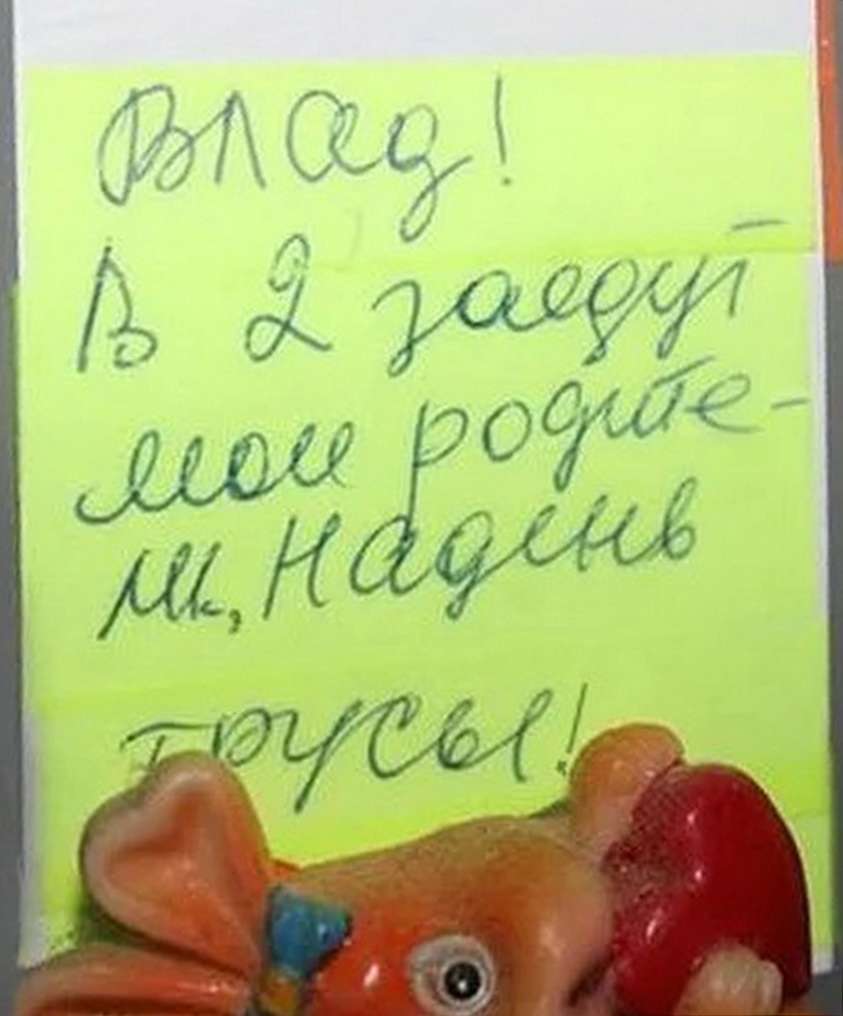 Влад!
В 2 заедут
мои родите-
ли, Надень
трусы!